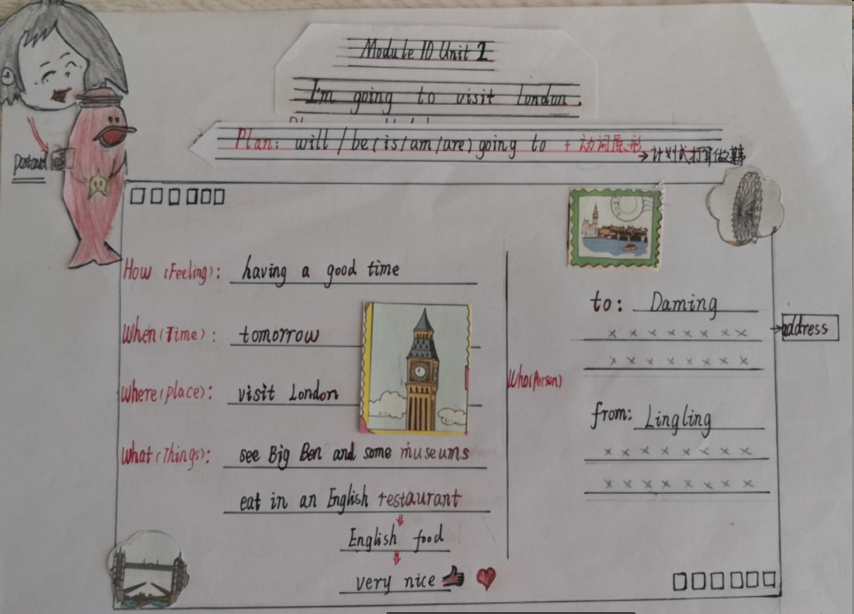 Module 10 Unit 1
I'm going to visit London.
Plan: will / be (is/am/are) going to + 动词原形
→计划或打算做某事
Postcard
How (Feeling): having a good time
When (Time): tomorrow
Where (place): visit London
What (Things): see Big Ben and some museums
eat in an English restaurant
English food
very nice
Who (Person)
to: Daming
× × × × × × × ×
× × × × × × × ×
address
from: Lingling
× × × × × × × ×
× × × × × × × ×